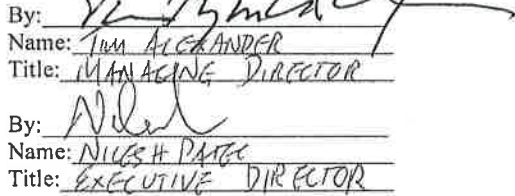 By:
Name: TIM ALEXANDER
Title: MANAGING DIRECTOR
By:
Name: NILESH PATEL
Title: EXECUTIVE DIRECTOR